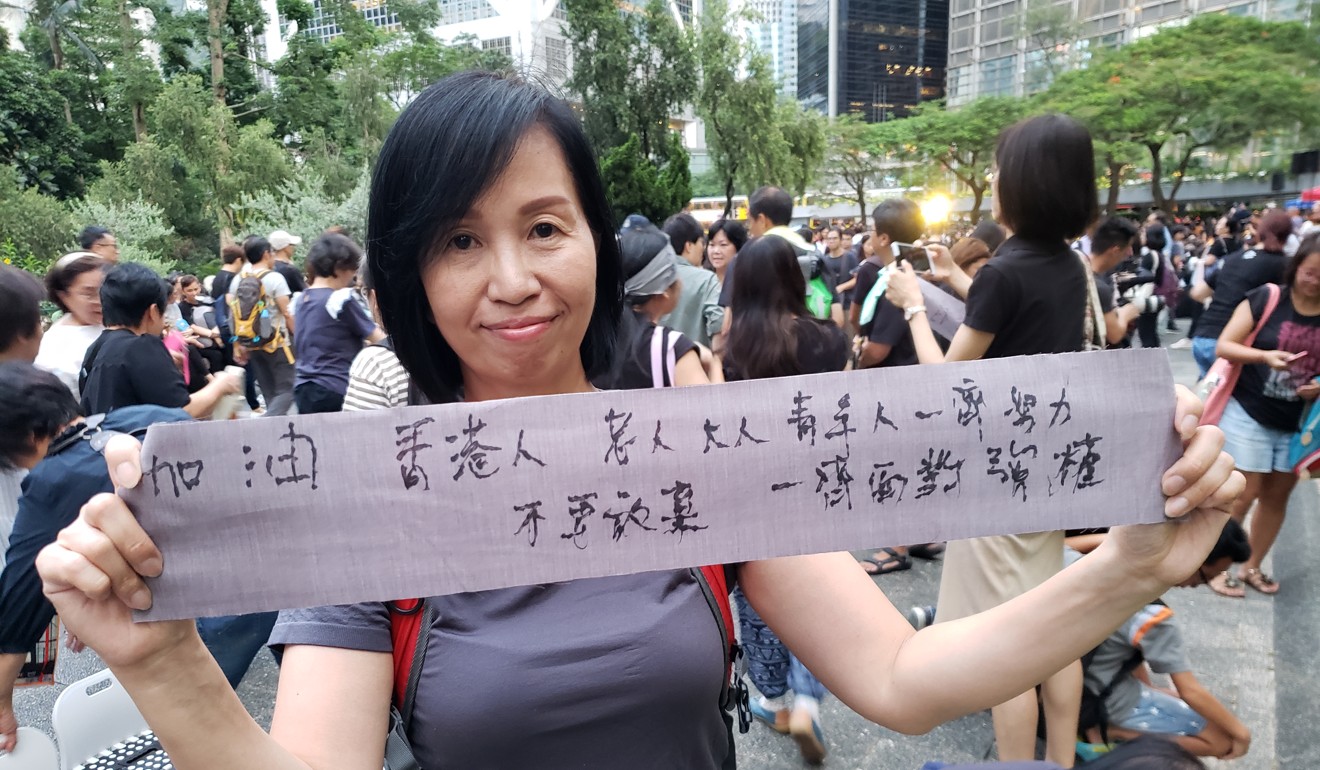 加油 香港人 老人 大人 青年人 一齊努力
不要放棄 一齊面對強權